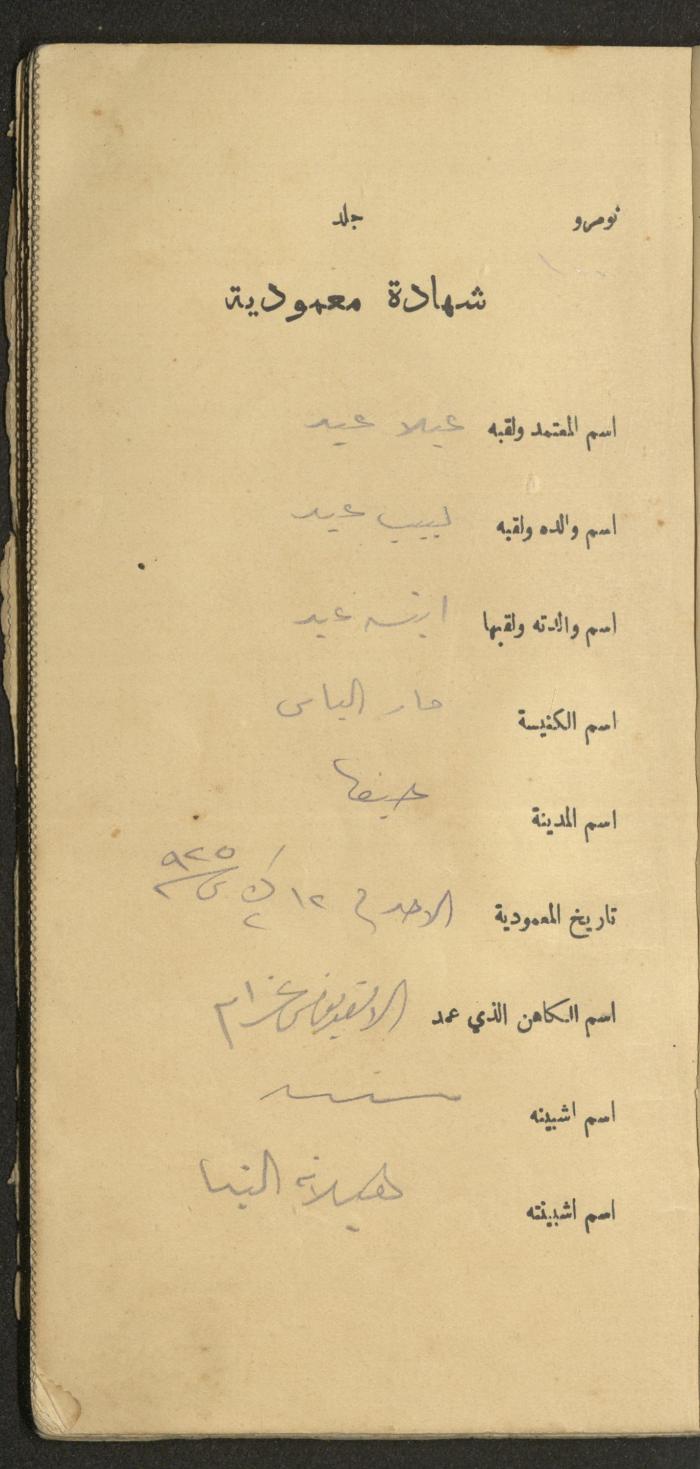 نومرو جلد
١٠٠
شهادة معمودية
اسم المعتمد ولقبه عبلا عيد
اسم والده ولقبه لبيب عيد
اسم والدته ولقبها عيد
اسم الكنيسة مار الياس
اسم المدينة حيفا
تاريخ المعمودية الاحد في ١٢ ك ٢ ٩٢٥
اسم الكاهن الذي عمد
اسم اشبينه
اسم اشبينته هيلانه